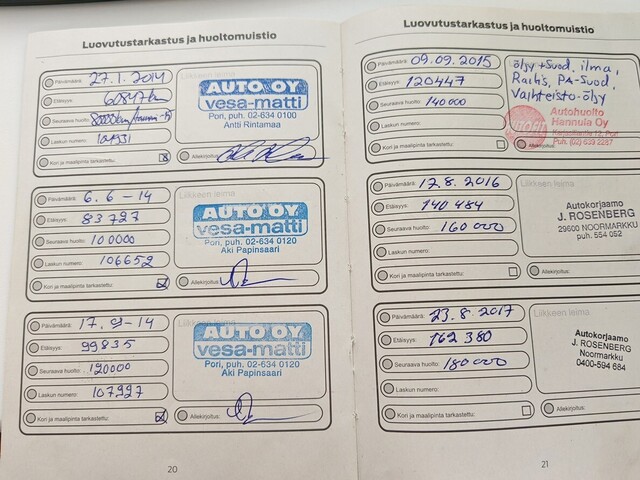 Luovutustarkastus ja huoltomuistio
Päivämäärä: 27.1.2014
Etäisyys: 60847 km
Seuraava huolto:
Laskun numero: 104931
Kori ja maalipinta tarkastettu:
Liikkeen leima
AUTO OY
vesa-matti
Pori, puh. 02-634 0100
Antti Rintamaa
Allekirjoitus:
Päivämäärä: 6.6-14
Etäisyys: 83727
Seuraava huolto: 100000
Laskun numero: 106652
Kori ja maalipinta tarkastettu:
Liikkeen leima
AUTO OY
vesa-matti
Pori, puh. 02-634 0120
Aki Papinsaari
Allekirjoitus:
Päivämäärä: 17.9-14
Etäisyys: 99835
Seuraava huolto: 120000
Laskun numero: 107927
Kori ja maalipinta tarkastettu:
Liikkeen leima
AUTO OY
vesa-matti
Pori, puh. 02-634 0120
Aki Papinsaari
Allekirjoitus:
20
Luovutustarkastus ja huoltomuistio
Päivämäärä: 09.09.2015
Etäisyys: 120447
Seuraava huolto: 140000
Laskun numero:
Kori ja maalipinta tarkastettu:
öljy + Suod, ilma,
Raitis, PA-Suod,
Vaihteisto-öljy
Autohuolto
Hannula Oy
Karjapiha 12, Pori
Puh. (02) 639 2287
Allekirjoitus:
Päivämäärä: 12.8.2016
Etäisyys: 140 484
Seuraava huolto: 160 000
Laskun numero:
Kori ja maalipinta tarkastettu:
Liikkeen leima
Autokorjaamo
J. ROSENBERG
29600 NOORMARKKU
puh. 554 052
Allekirjoitus:
Päivämäärä: 23.8.2017
Etäisyys: 162 380
Seuraava huolto: 180000
Laskun numero:
Kori ja maalipinta tarkastettu:
Liikkeen leima
Autokorjaamo
J. ROSENBERG
Noormarkku
0400-594 684
Allekirjoitus:
21